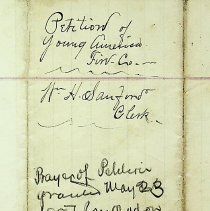 Petition of
Young America
Fire Co.
Wm H. Sanford
Clerk
Prayer of Petition
granted May 23